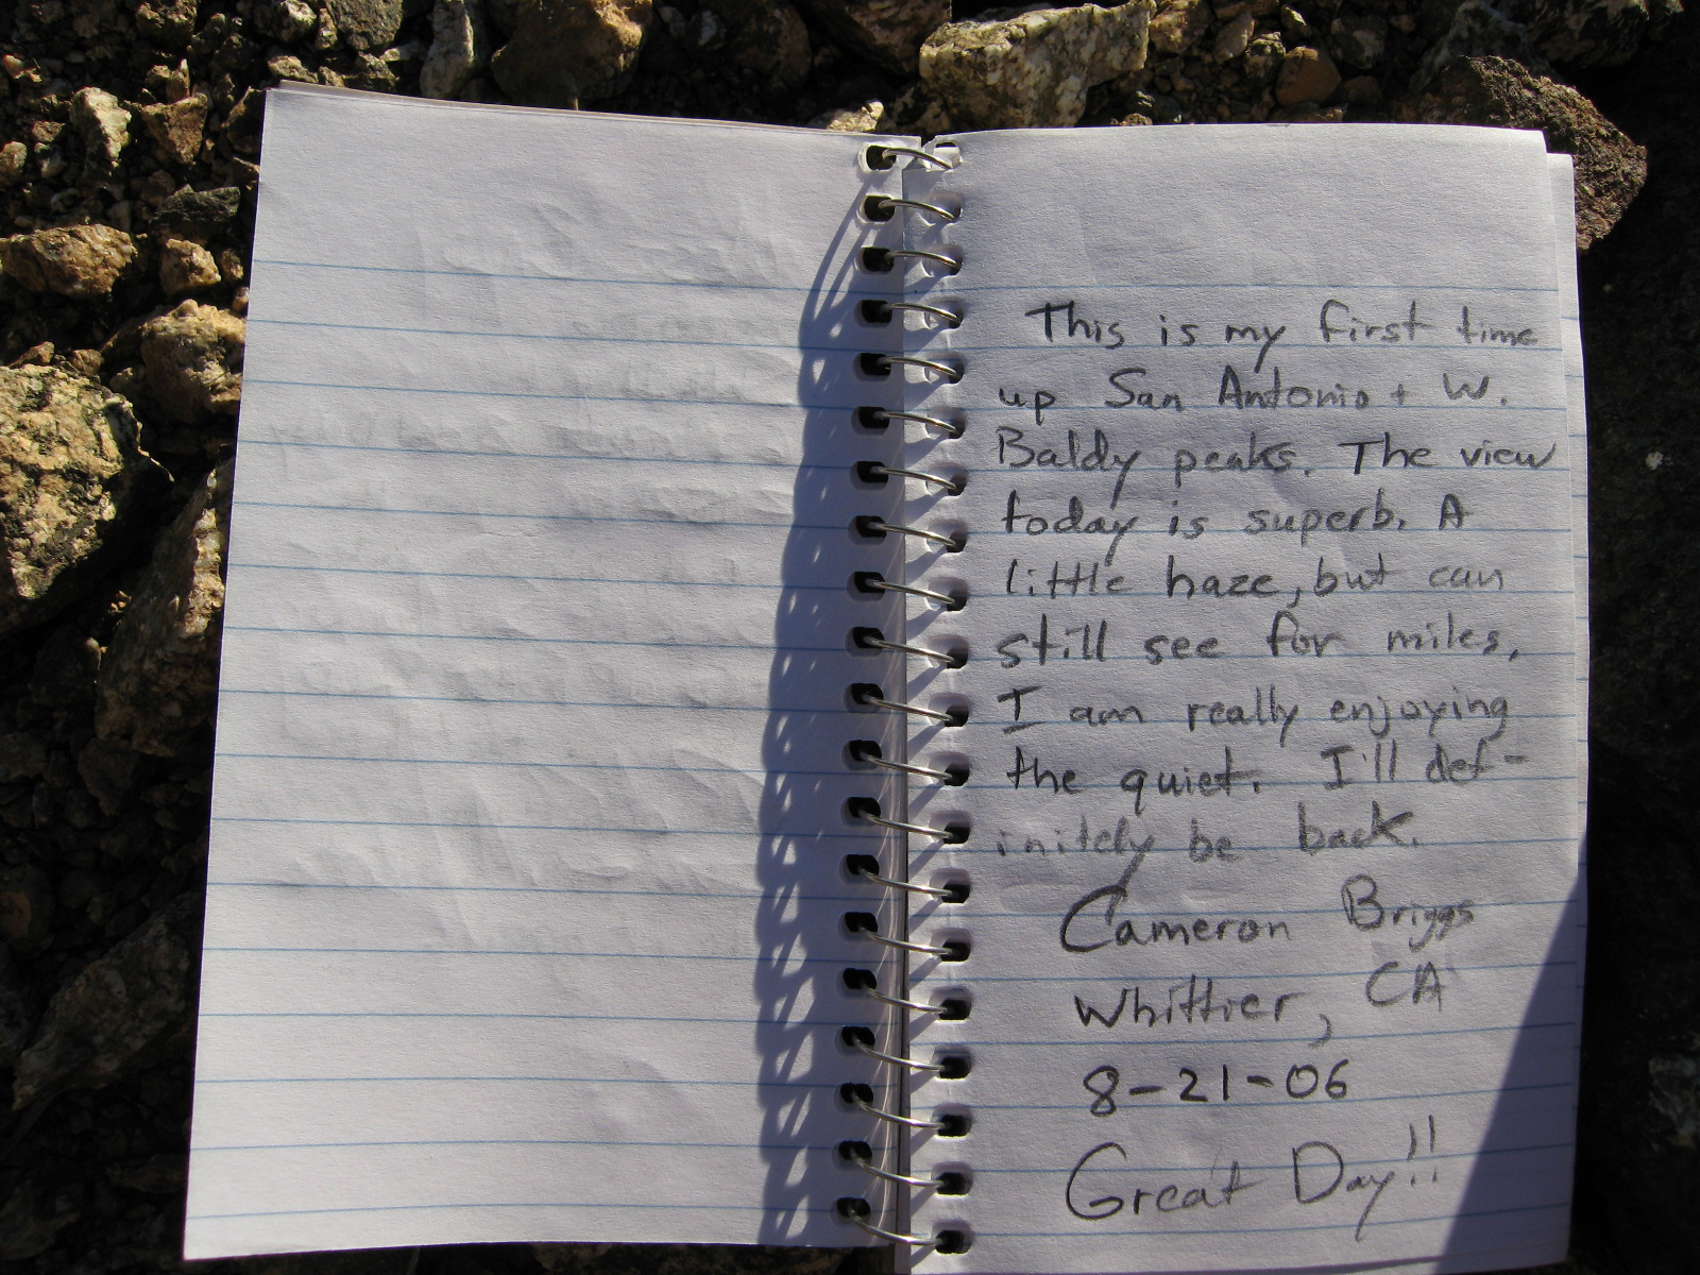 This is my first time
up San Antonio + W.
Baldy peaks. The view
today is superb. A
little haze, but can
still see for miles.
I am really enjoying
the quiet. I'll def-
initely be back.
Cameron Briggs
Whittier, CA
8-21-06
Great Day!!